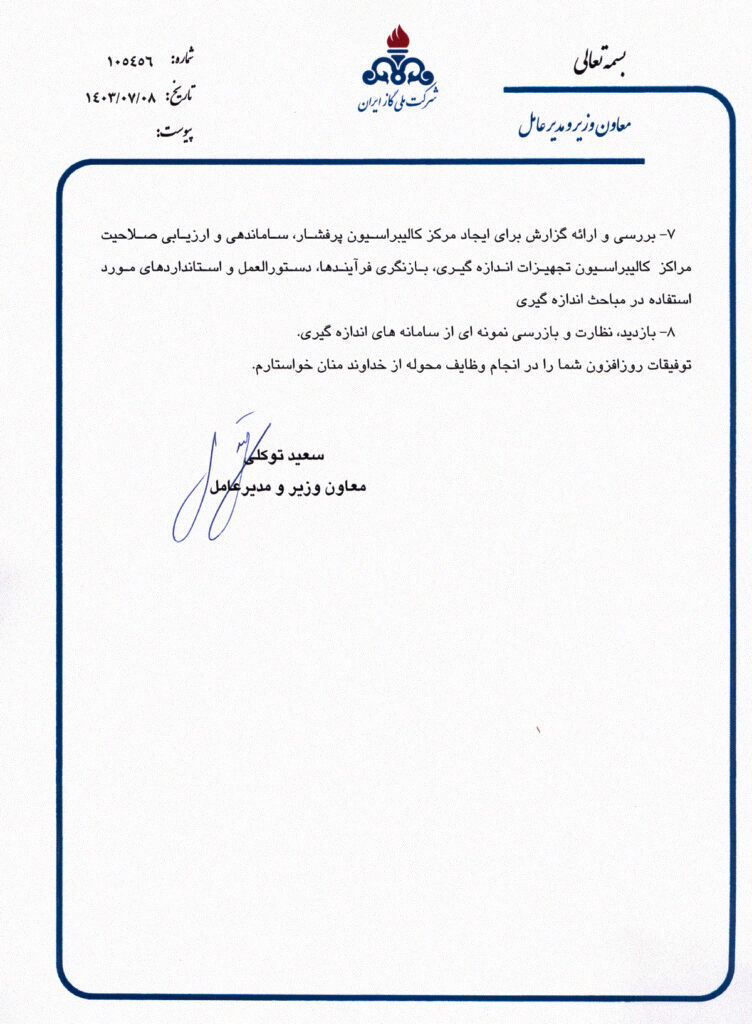 بسمه تعالی
معاون وزیر و مدیرعامل
شرکت ملی گاز ایران
شماره: ۱۰۵۴۵۶
تاریخ: ۱۴۰۳/۰۷/۰۸
پیوست:
۷- بررسی و ارائه گزارش برای ایجاد مرکز کالیبراسیون پرفشار، ساماندهی و ارزیابی صلاحیت
مراکز کالیبراسیون تجهیزات اندازه گیری، بازنگری فرآیندها، دستورالعمل و استانداردهای مورد
استفاده در مباحث اندازه گیری
۸- بازدید، نظارت و بازرسی نمونه ای از سامانه های اندازه گیری.
توفیقات روزافزون شما را در انجام وظایف محوله از خداوند منان خواستارم.
سعید توکلی
معاون وزیر و مدیرعامل